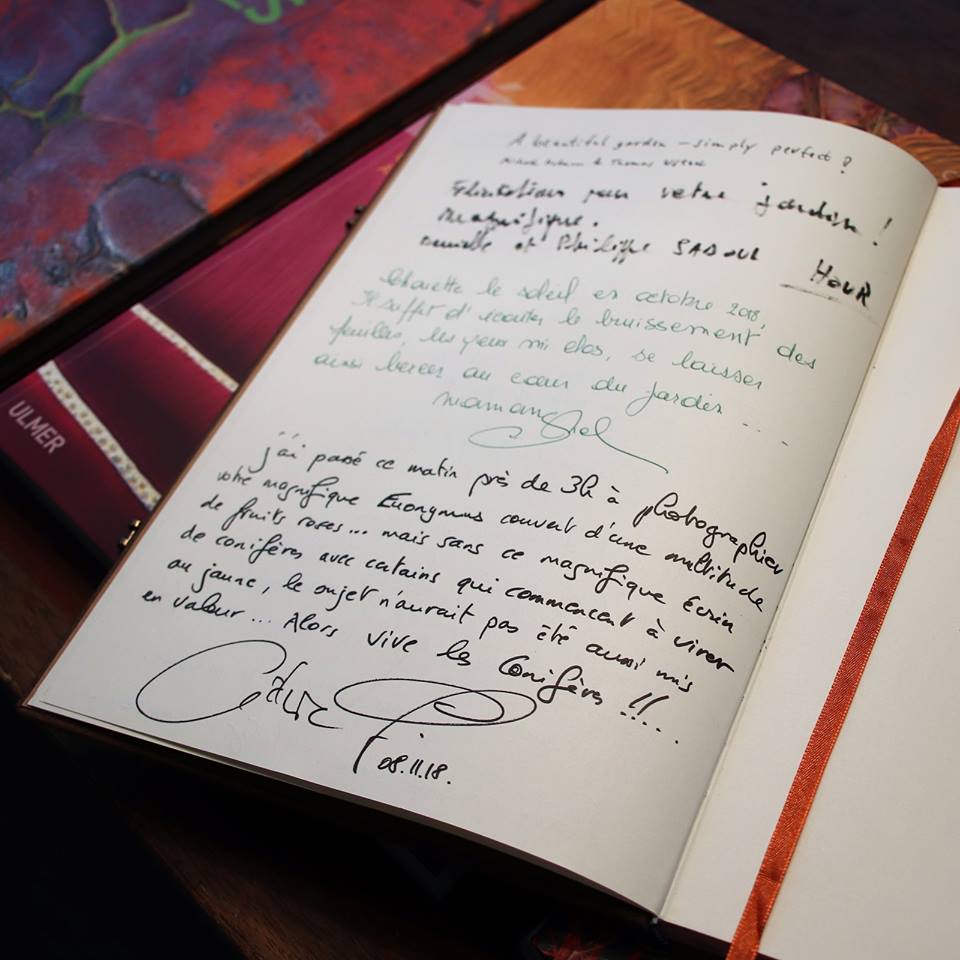 A beautiful garden – simply perfect !
& Thomas
Félicitations pour votre jardin !
Magnifique.
et Philippe SADOUL
HOUR
Chouette le soleil en octobre 2018,
Il suffit d'écouter le bruissement des
feuilles, les yeux mi clos, se laisser
ainsi bercer au cœur du jardin ....
maman
j'ai passé ce matin près de 3h à photographier
votre magnifique Euonymus couvert d'une multitude
de fruits roses... mais sans ce magnifique écrin
de conifères avec catains qui commencent à virer
au jaune, le sujet n'aurait pas été aussi mis
en valeur... Alors vive les Conifères !!...
08.11.18.
ULMER